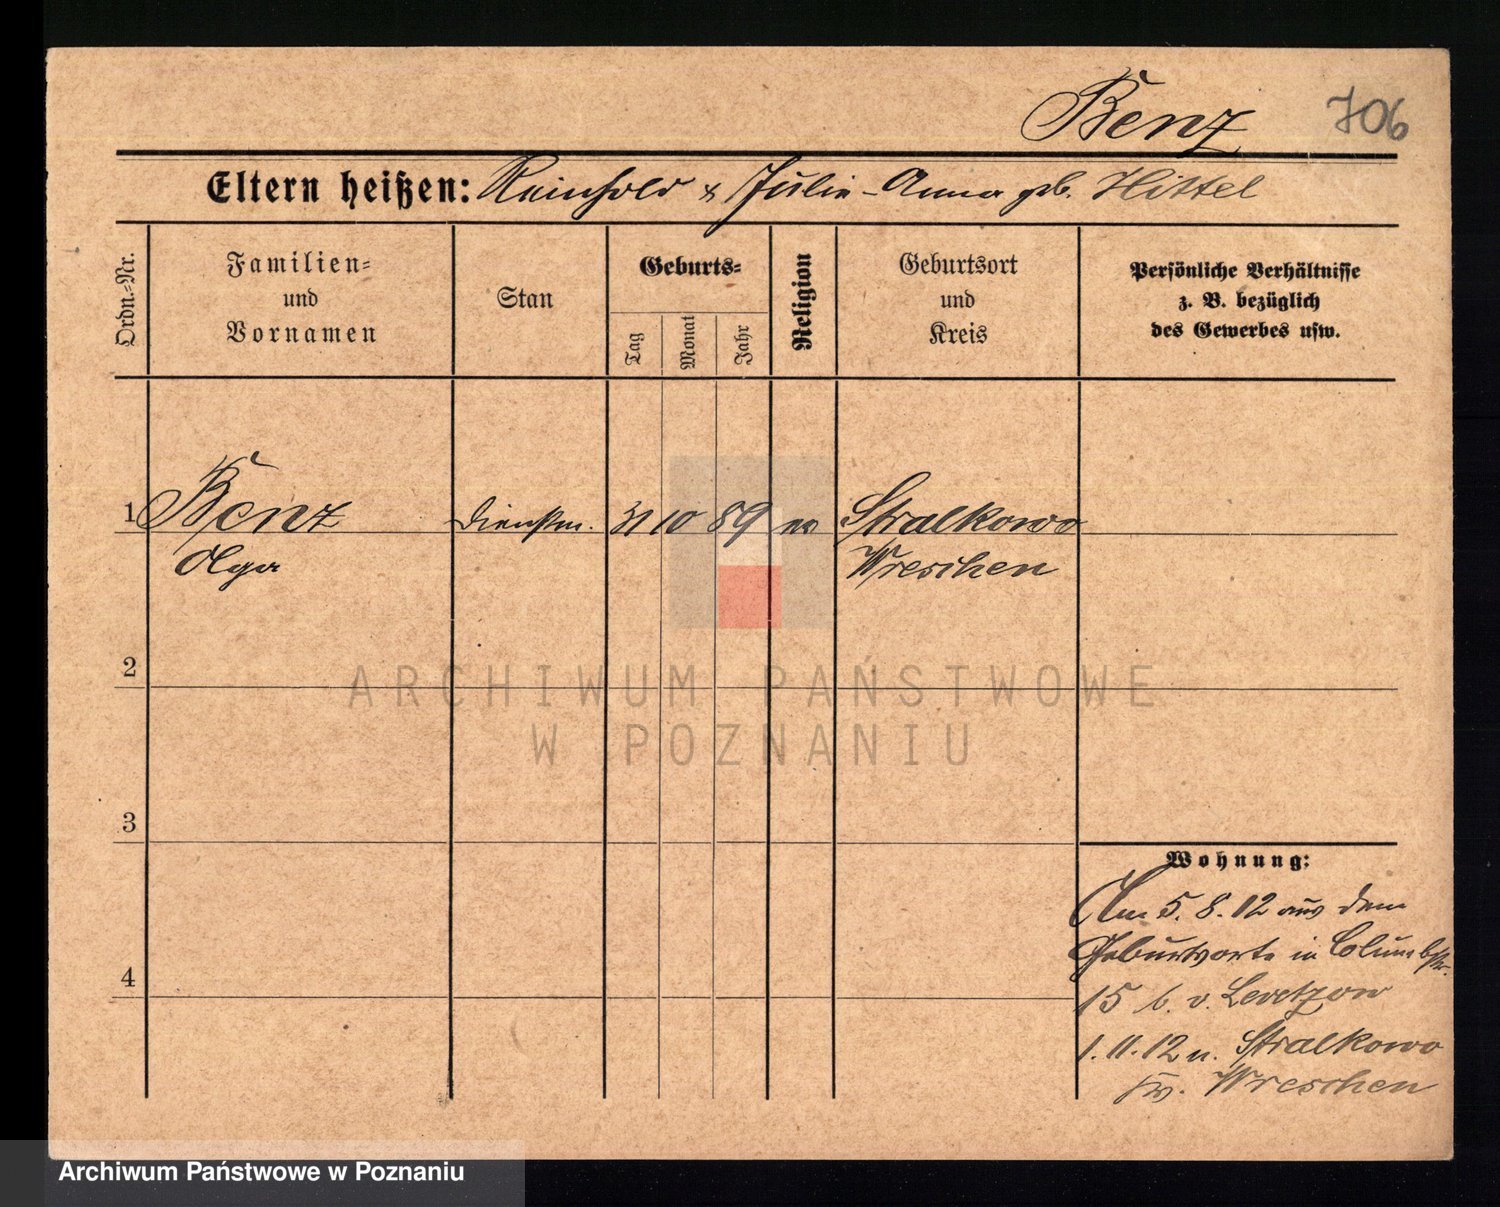 Benz 706
Eltern heißen: Reinhold & Julie-Anna geb. Hittel
Ordn.-Nr.
Familien-
und
Vornamen
Stan
Geburts-
Tag
Monat
Jahr
Religion
Geburtsort
und
Kreis
Persönliche Verhältnisse
z. B. bezüglich
des Gewerbes usw.
1 Benz Dienstm. 31 10 89 ev Stralkowo
Olga Wreschen
2
ARCHIWUM PAŃSTWOWE
W POZNANIU
3
Wohnung:
Am 5.8.12 aus dem
Geburtsorte in Columbstr.
15 b. v. Levetzow
1.11.12 n. Stralkowo
Wreschen
4
Archiwum Państwowe w Poznaniu